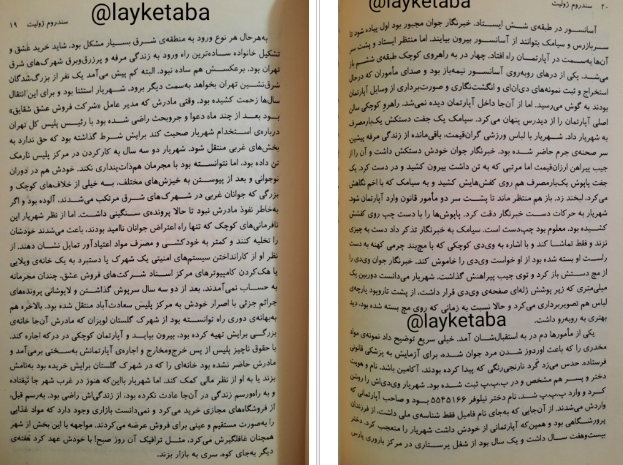 ۲۰
@layketaba
آسانسور در طبقه‌ی شش ایستاد. خبرنگار جوان مجبور بود اول پیاده شود تا
سربازرس و سیامک بتوانند از آسانسور بیرون بیایند. اما منتظر ایستاد و پشت سر
آن‌ها به‌سمت در آپارتمان راه افتاد. چهار در به راهروی کوچک طبقه‌ی ششم باز
می‌شد. یکی از درهای روبه‌روی آسانسور نیمه‌باز بود و صدای مأموران که درحال
استخراج و ثبت نمونه‌های دی‌ان‌ای و انگشت‌نگاری و صورت‌برداری از وسایل آپارتمان
بودند به گوش می‌رسید. اما از آن‌جا داخل آپارتمان دیده نمی‌شد. راهرو کوچکی سالن
اصلی آپارتمان را از دیدرس پنهان می‌کرد. سیامک یک جفت دستکش یک‌بارمصرف
به شهریار داد. شهریار با لباس ورزشی گران‌قیمت، باقی‌مانده از زندگی مرفه پیشین
سر صحنه‌ی جرم حاضر شده بود. خبرنگار جوان خودش دستکش داشت و آن را از
جیب پیراهن ارزان‌قیمت اما مرتبی که به تن داشت بیرون کشید و در دست کرد. یک
جفت پاپوش یک‌بارمصرف هم روی کفش‌هایش کشید و به سیامک که با اخم نگاهش
می‌کرد، لبخند زد. باز هم منتظر ماند تا پشت سر دو مأمور قانون وارد آپارتمان شود.
شهریار به حرکات دست خبرنگار دقت کرد. پاپوش‌ها را با دست چپ روی کفش
کشیده بود. معلوم بود چپ‌دست است. سیامک به خبرنگار تذکر داد دست به چیزی
نزند و فقط تماشا کند و با اشاره به وی‌دی کوچکی که با مچ‌بند چرمی کهنه به دست
راست او بسته شده بود از او خواست وی‌دی را خاموش کند. خبرنگار جوان وی‌دی را
از مچ دستش باز کرد و توی جیب پیراهنش گذاشت. شهریار می‌دانست دوربین یک
میلی‌متری که زیر پوشش ژله‌ای صفحه‌ی وی‌دی قرار داشت، از پشت تاروپود پارچه‌ی
لباس هم تصویربرداری می‌کرد و حالا نسبت به زمانی که روی مچ بسته شده بود، دید
بهتری به روبه‌رو داشت.
@layketaba
یکی از مأمورها دم در به استقبال‌شان آمد. خیلی سریع توضیح داد نمونه‌ی مواد
مخدری را که باعث اوردوز شدن مرد جوان شده، برای آزمایش به پزشکی قانونی
فرستاده. حدس می‌زد گَرد نارنجی‌رنگی که پیدا کرده بودند، آکامین باشد. نام و هویت
دختر و پسر هم مشخص و در ب‌پ‌پ ثبت شده بود. شهریار وی‌دی‌اش را روشن
کرد و وارد ب‌پ‌پ شد. نام دختر نیلوفر ۵۵۴۵۱۶۶ بود و صاحب آپارتمانی که
واردش می‌شدند. از آن‌جایی که به‌جای نام فامیل فقط شناسه‌ی ملی داشت، از فرزندان
پرورشگاهی بود و همین‌که آپارتمانی از خودش داشت شهریار را متعجب کرد. دختر
بیست‌وهفت سال داشت و یک سال بود از شغل پرستاری در مرکز باروری پارس
سندروم ژولیت
۱۹
@layketaba
به‌هرحال هر نوع ورود به منطقه‌ی شرق بسیار مشکل بود. شاید خرید عشق و
تشکیل خانواده ساده‌ترین راه ورود به زندگی مرفه و پرزرق‌وبرق شهرک‌های شرق
تهران بود. برعکسش هم ساده نبود. البته کم پیش می‌آمد یک نفر از بزرگ‌شدگان
شرق‌نشین تهران بخواهد به‌سمت دیگر برود. شهریار استثنا بود و برای این انتقال
سال‌ها زحمت کشیده بود. وقتی مادرش که مدیر عامل «شرکت فروش عشق شقایق»
بود بعد از چند ماه دعوا و جروبحث راضی شده بود با رئیس پلیس کل تهران
درباره‌ی استخدام شهریار صحبت کند برایش شرط گذاشته بود که حق ندارد به
بخش‌های غربی منتقل شود. شهریار در دو سه سال به کارکردن در مرکز پلیس نارمک
تن داده بود. اما نتوانسته بود با مجرمان هم‌ذات‌پنداری نکند. خودش هم در دوران
نوجوانی و بعد از پیوستن به خیزش‌های مختلف، به خیلی از خلاف‌های کوچک و
بزرگی که جوانان غربی در شهرک‌های شرق مرتکب می‌شدند، آلوده بود و اگر
به‌خاطر نفوذ مادرش نبود تا حالا پرونده‌ی سنگینی داشت. اما از نظر شهریار این
نافرمانی‌های کوچک که تنها راه اعتراض جوانان ناامید بودند، باعث می‌شدند خودشان
را تخلیه کنند و کمتر به خودکشی و مصرف مواد اعتیادآور تمایل نشان دهند. از
نظر او از کارانداختن سیستم‌های امنیتی یک شهرک یا دستبرد به یک خانه‌ی ویلایی
یا هک‌کردن کامپیوترهای مرکز اسناد شرکت‌های فروش عشق، چندان مجرمانه
به حساب نمی‌آمدند. بعد از دو سه سال سرپوش گذاشتن و لاپوشانی پرونده‌های
جرائم جزئی با اصرار خودش به مرکز پلیس سعادت‌آباد منتقل شده بود. بالاخره هم
به‌بهانه‌ی دوری راه توانسته بود از شهرک گلستان لویزان که مادرش آن‌جا خانه‌ی
بزرگی برایش تهیه کرده بود، بیرون بیاید و آپارتمان کوچکی در درکه اجاره کند.
با حقوق ناچیز پلیس از پس خرج‌ومخارج و اجاره‌ی آپارتمانش به‌سختی برمی‌آمد و
مادرش حاضر نشده بود خانه‌ای را که در شهرک گلستان برایش خریده بود به‌نامش
بزند یا به او از نظر مالی کمک کند. اما شهریار بااین‌که هنوز در غرب شهر جا نیفتاده
و به راه‌ورسم زندگی در آن‌جا عادت نکرده بود، از زندگی‌اش راضی بود. به‌رسم قبل،
از فروشگاه‌های مجازی خرید می‌کرد و نمی‌دانست بازاری وجود دارد که مواد غذایی
را به‌صورت مستقیم و عینی برای فروش عرضه می‌کردند. مواجهه با این بخش از شهر
همچنان غافلگیرش می‌کرد. مثل ترافیک آن روز صبح! با خودش عهد کرد هفته‌ی
دیگر به‌جای کوه، سری به بازار بزند.